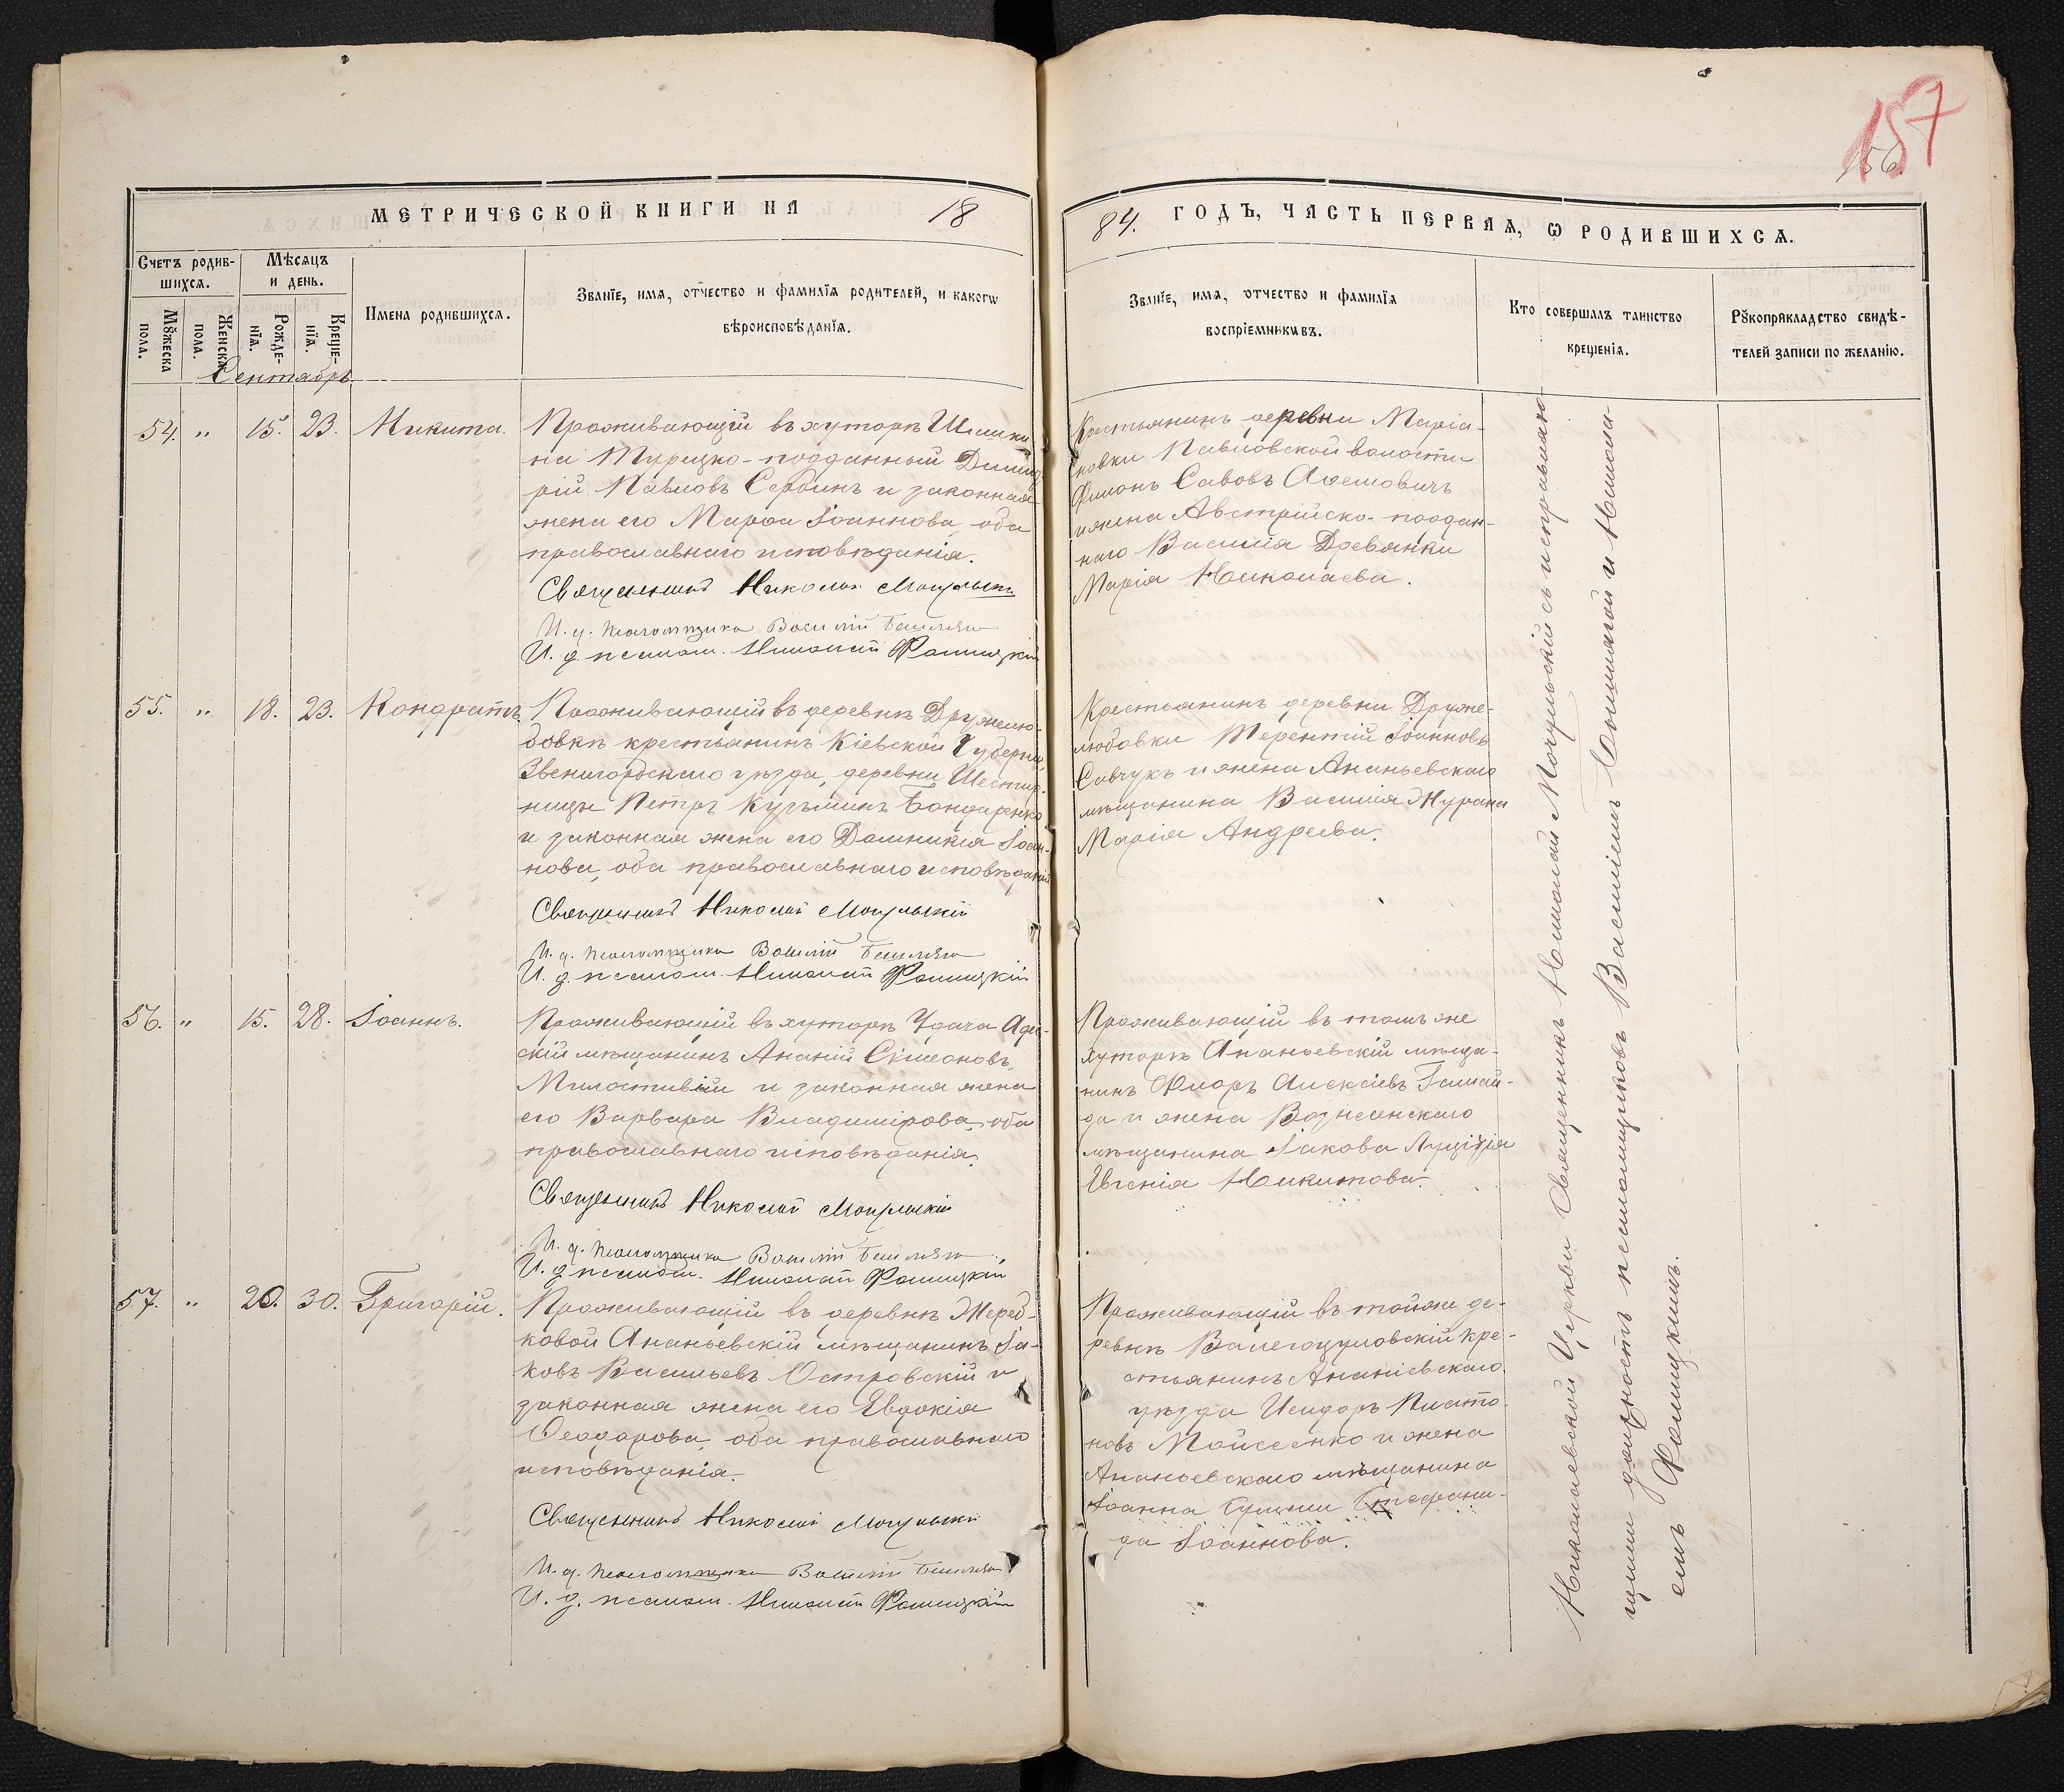 157
156.
МЕТРИЧЕСКОЙ КНИГИ НА 18
84. ГОДЪ, ЧАСТЬ ПЕРВАЯ, Ѡ РОДИВШИХСѦ.
Счетъ родив-
шихсѧ.
Мѣсѧцъ
и день.
Мꙋжеска
пола.
Женска
пола.
Рожде-
нїѧ.
Креще-
нїѧ.
Имена родившихсѧ.
Званїе, имѧ, отчество и фамилїѧ родителей, и какогѡ
вѣроисповѣданїѧ.
Званїе, имѧ, отчество и фамилїѧ
воспрїемниковъ.
Кто совершалъ таинство
крещенїѧ.
Рꙋкоприкладство свидѣ-
телей записи по желанїю.
Сентябрь
54. " 15. 23. Никита.
Проживающій въ хуторѣ Шишки-
на Турецко-подданный Димит
рій Павловъ Сербинъ и законная
жена его Марѳа Іоаннова, оба
православнаго исповѣданія.
Священникъ Николай Могульскій
И. д. псаломщика Василій
И. д. псалом. Николай Фомицкій
Крестьянинъ деревни Марія-
новки Павловской волости
Филонъ Савовъ
и жена Австрійско-поддан-
наго Василія Древянки
Марія Николаева.
55. " 18. 23. Кондратъ
Проживающій въ деревнѣ Дружелю-
бовкѣ крестьянинъ Кіевской Губерніи,
Звенигородскаго уѣзда, деревни
ницы Петръ Кузьминъ Бондаренко
и законная жена его Домникія Іоан-
нова, оба православнаго исповѣданія
Священникъ Николай Могульскій
И. д. псаломщика Василій
И. д. псалом. Николай Фомицкій
Крестьянинъ деревни Друже-
любовки Терентій Іоанновъ
Савчукъ и жена Ананьевскаго
мѣщанина Василія Журана
Марія Андреева.
56. " 15. 28. Іоаннъ.
Проживающій въ хуторѣ Удача Одес-
скій мѣщанинъ Ананій Симеоновъ
Милостивый и законная жена
его Варвара Владимірова, оба
православнаго исповѣданія.
Священникъ Николай Могульскій
И. д. псаломщика Василій
И. д. псалом. Николай Фомицкій
Проживающій въ томъ же
хуторѣ Ананьевскій мѣща-
нинъ Флоръ Алексіевъ Гамай-
да и жена Вознесенскаго
мѣщанина Іакова
Евгенія Никитова.
57. " 20. 30. Григорій.
Проживающій въ деревнѣ Жереб-
ковой Ананьевскій мѣщанинъ Іа-
ковъ Васильевъ Островскій и
законная жена его Евдокія
Ѳеодорова, оба православнаго
исповѣданія.
Священникъ Николай Могульскій
И. д. псаломщика Василій
И. д. псалом. Николай Фомицкій
Проживающій въ той же де-
ревнѣ Валегоцуловскій кре-
стьянинъ Ананіевскаго
уѣзда Исидоръ Плато-
новъ Мойсеенко и жена
Ананьевскаго мѣщанина
Іоанна Стефани-
да Іоаннова.
Николаевской Церкви Священникъ Николай Могульскій съ исправляю-
щими должность псаломщиковъ Василіемъ и Никола-
емъ Фомицкимъ.